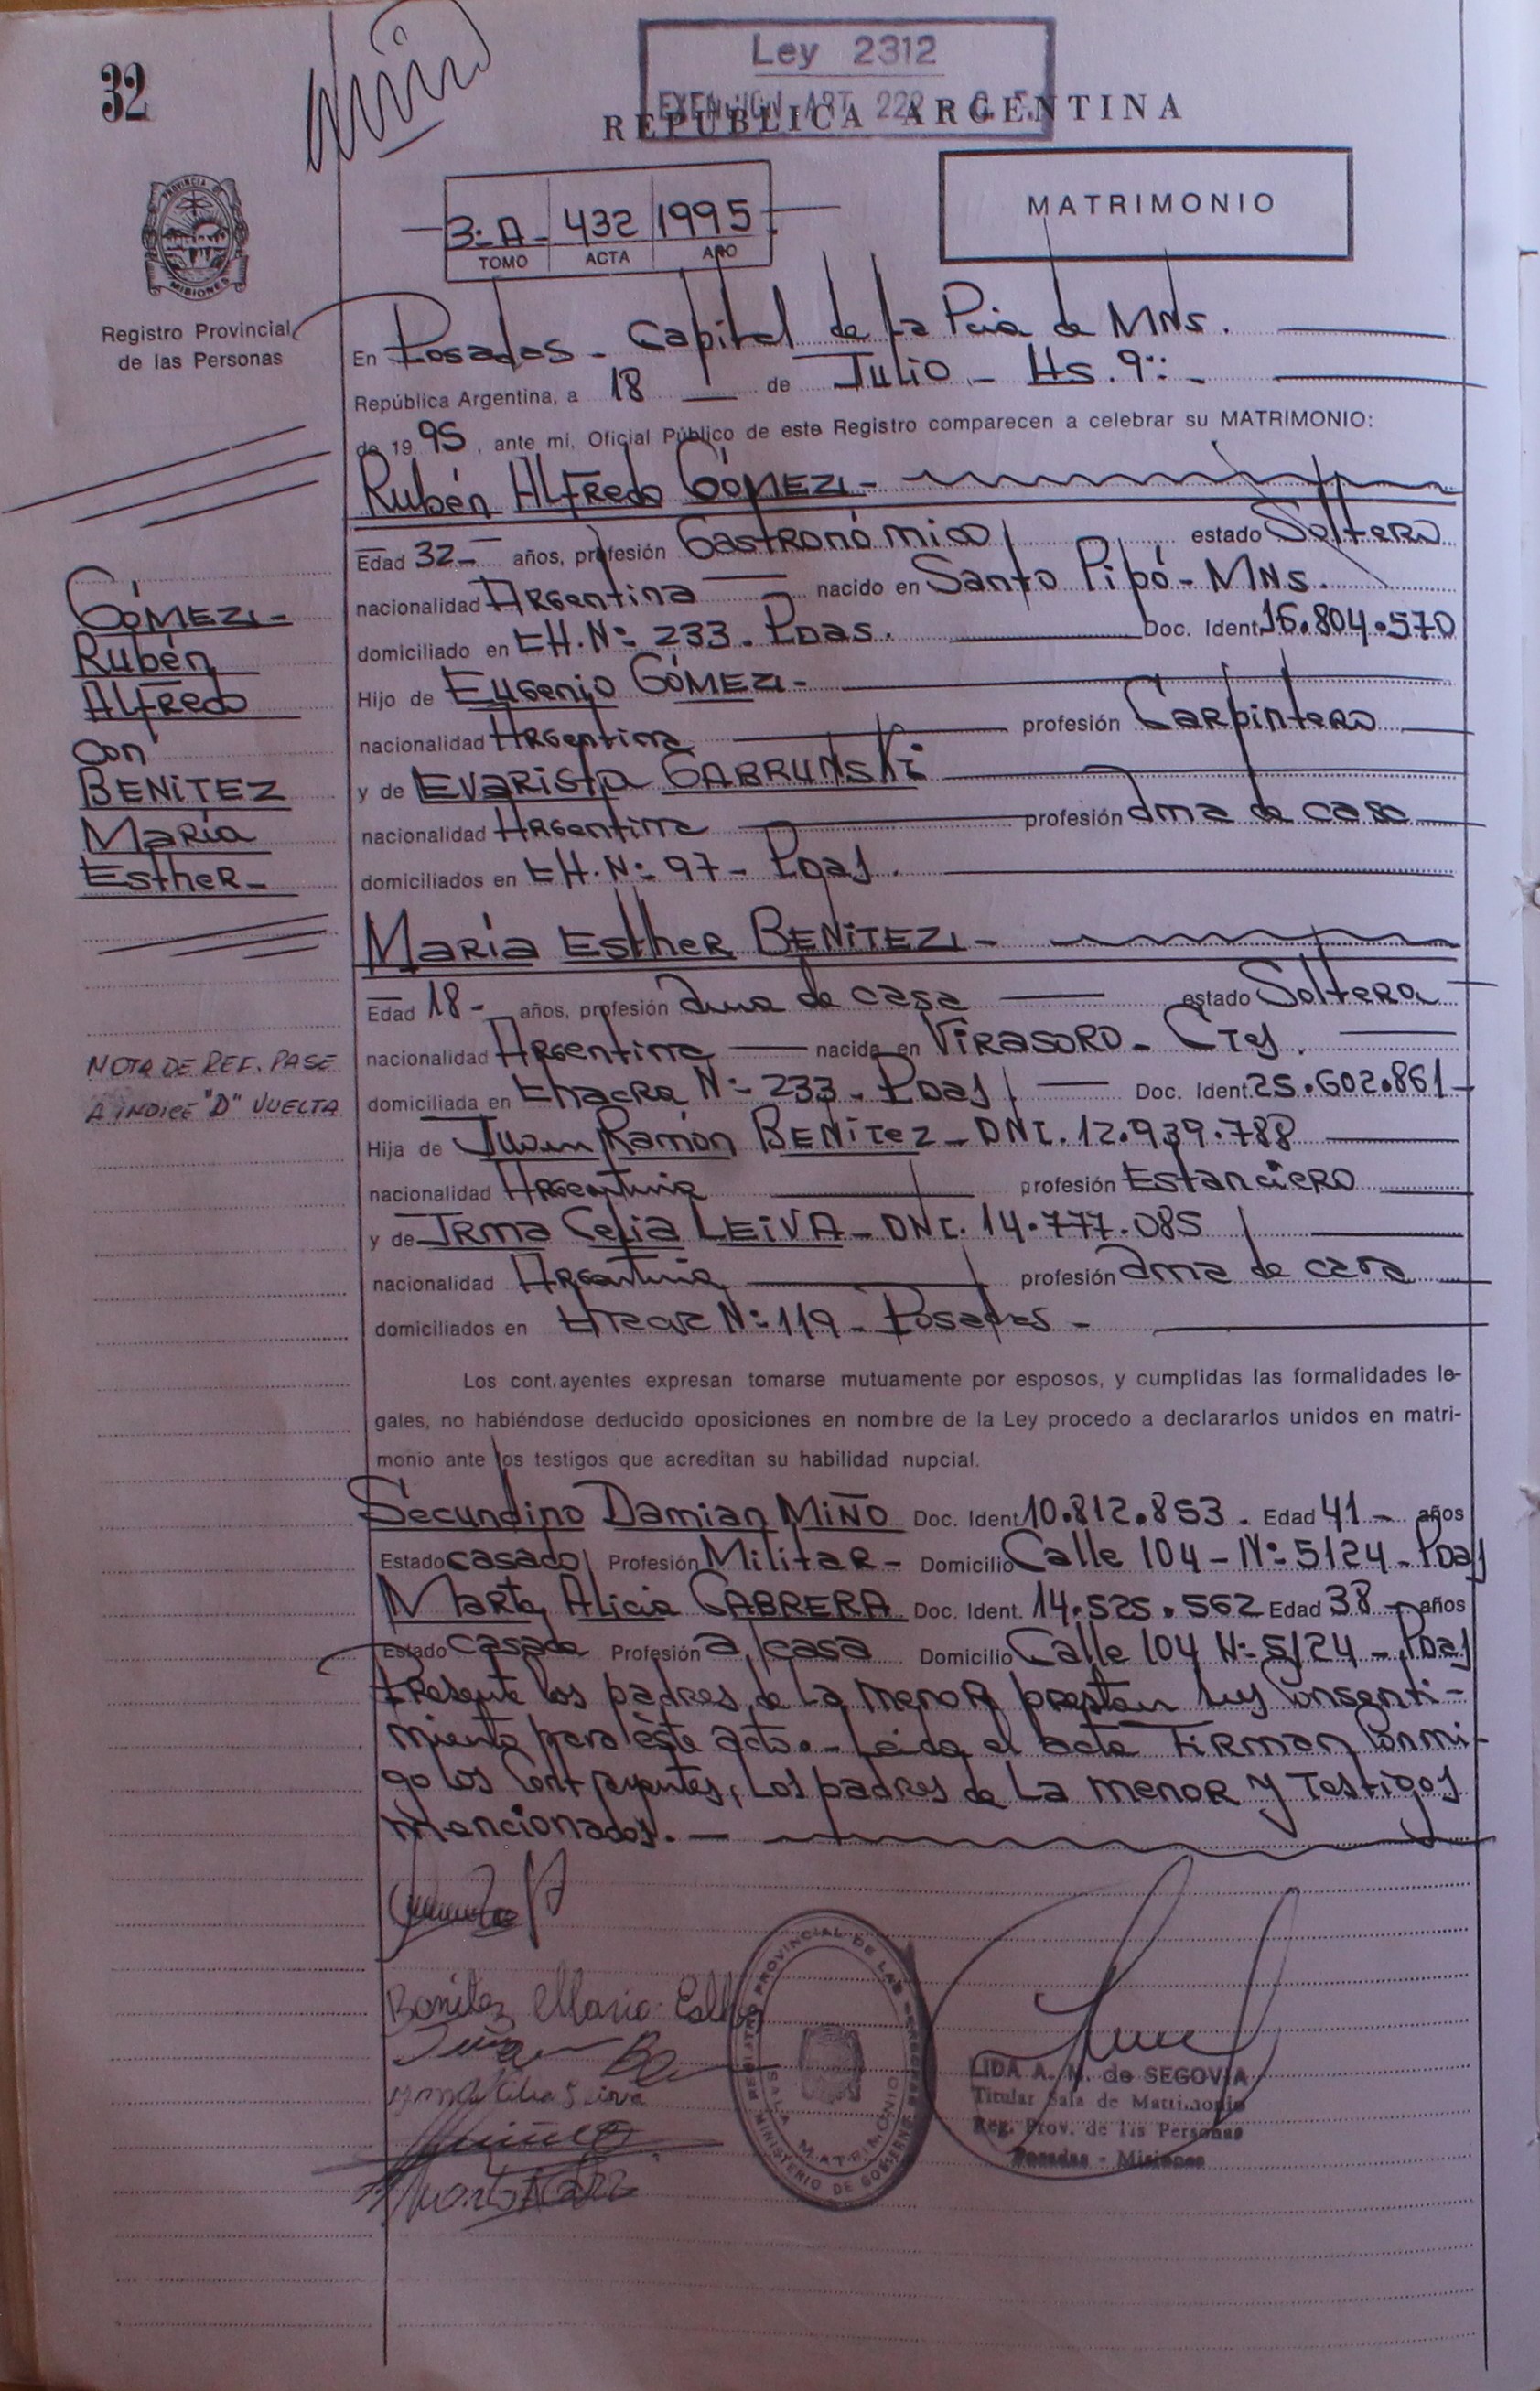 32
Ley 2312
EXENCION ART 222 C. F.
REPUBLICA ARGENTINA
PROVINCIA DE
MISIONES
Registro Provincial
de las Personas
3-A- 432 1995
TOMO ACTA AÑO
MATRIMONIO
En Posadas - Capital de La Pcia de MNs.
República Argentina, a 18 de Julio - Hs. 9:-
de 1995, ante mi, Oficial Público de este Registro comparecen a celebrar su MATRIMONIO:
Rubén ALFRedo GÓMEZ -
Edad 32 - años, profesión GastRonómico estado Soltero
nacionalidad ARGentina nacido en Santo Pipó - MNs.
domiciliado en CH. Nº 233 - Pdas. Doc. Ident. 16.804.570
Hijo de Eugenio GÓMEZ -
nacionalidad ARGentina profesión Carpintero
y de EVaRista GABRUNSKi
nacionalidad ARGentina profesión ama de casa
domiciliados en CH. Nº 97 - Pdas.
GÓMEZ -
Rubén
ALFRedo
con
BENiTEZ
María
EstheR -
María EstheR BENiTEZ -
Edad 18 - años, profesión ama de casa estado Soltera
nacionalidad ARGentina nacida en ViRASORO - Ctes.
domiciliada en Chacra Nº 233 - Pdas. Doc. Ident. 25.602.861
Hija de Juan Ramón BENiTez - DNI. 12.939.788
nacionalidad ARGentina profesión EstanciERO
y de IRma Celia LEiVA - DNI. 14.777.085
nacionalidad ARGentina profesión ama de casa
domiciliados en Nº 119 - Posadas -
NOTA DE REF. PASE
A INDICE "D" VUELTA
Los contrayentes expresan tomarse mutuamente por esposos, y cumplidas las formalidades le-
gales, no habiéndose deducido oposiciones en nombre de la Ley procedo a declararlos unidos en matri-
monio ante los testigos que acreditan su habilidad nupcial.
Secundino Damian MiÑO Doc. Ident. 10.812.853. Edad 41 - años
Estado casado Profesión MilitaR - Domicilio Calle 104 - Nº 5124 - Pdas
Marta Alicia CABRERA Doc. Ident. 14.525.562 Edad 38 - años
Estado casada Profesión a/casa Domicilio Calle 104 Nº 5124 - Pdas
Presente los padres de La menoR prestan sus Consenti-
miento para éste acto. - Leida el acta FiRman Conmi-
go los Contrayentes, Los padres de La menoR y Testigos
mencionados. -
Benitez Maria Esther
Irma Celia Leiva
REGISTRO PROVINCIAL DE LAS PERSONAS
SALA MATRIMONIO
MINISTERIO DE GOBIERNO
LIDA A. M. de SEGOVIA
Titular Sala de Matrimonio
Reg. Prov. de las Personas
Posadas - Misiones